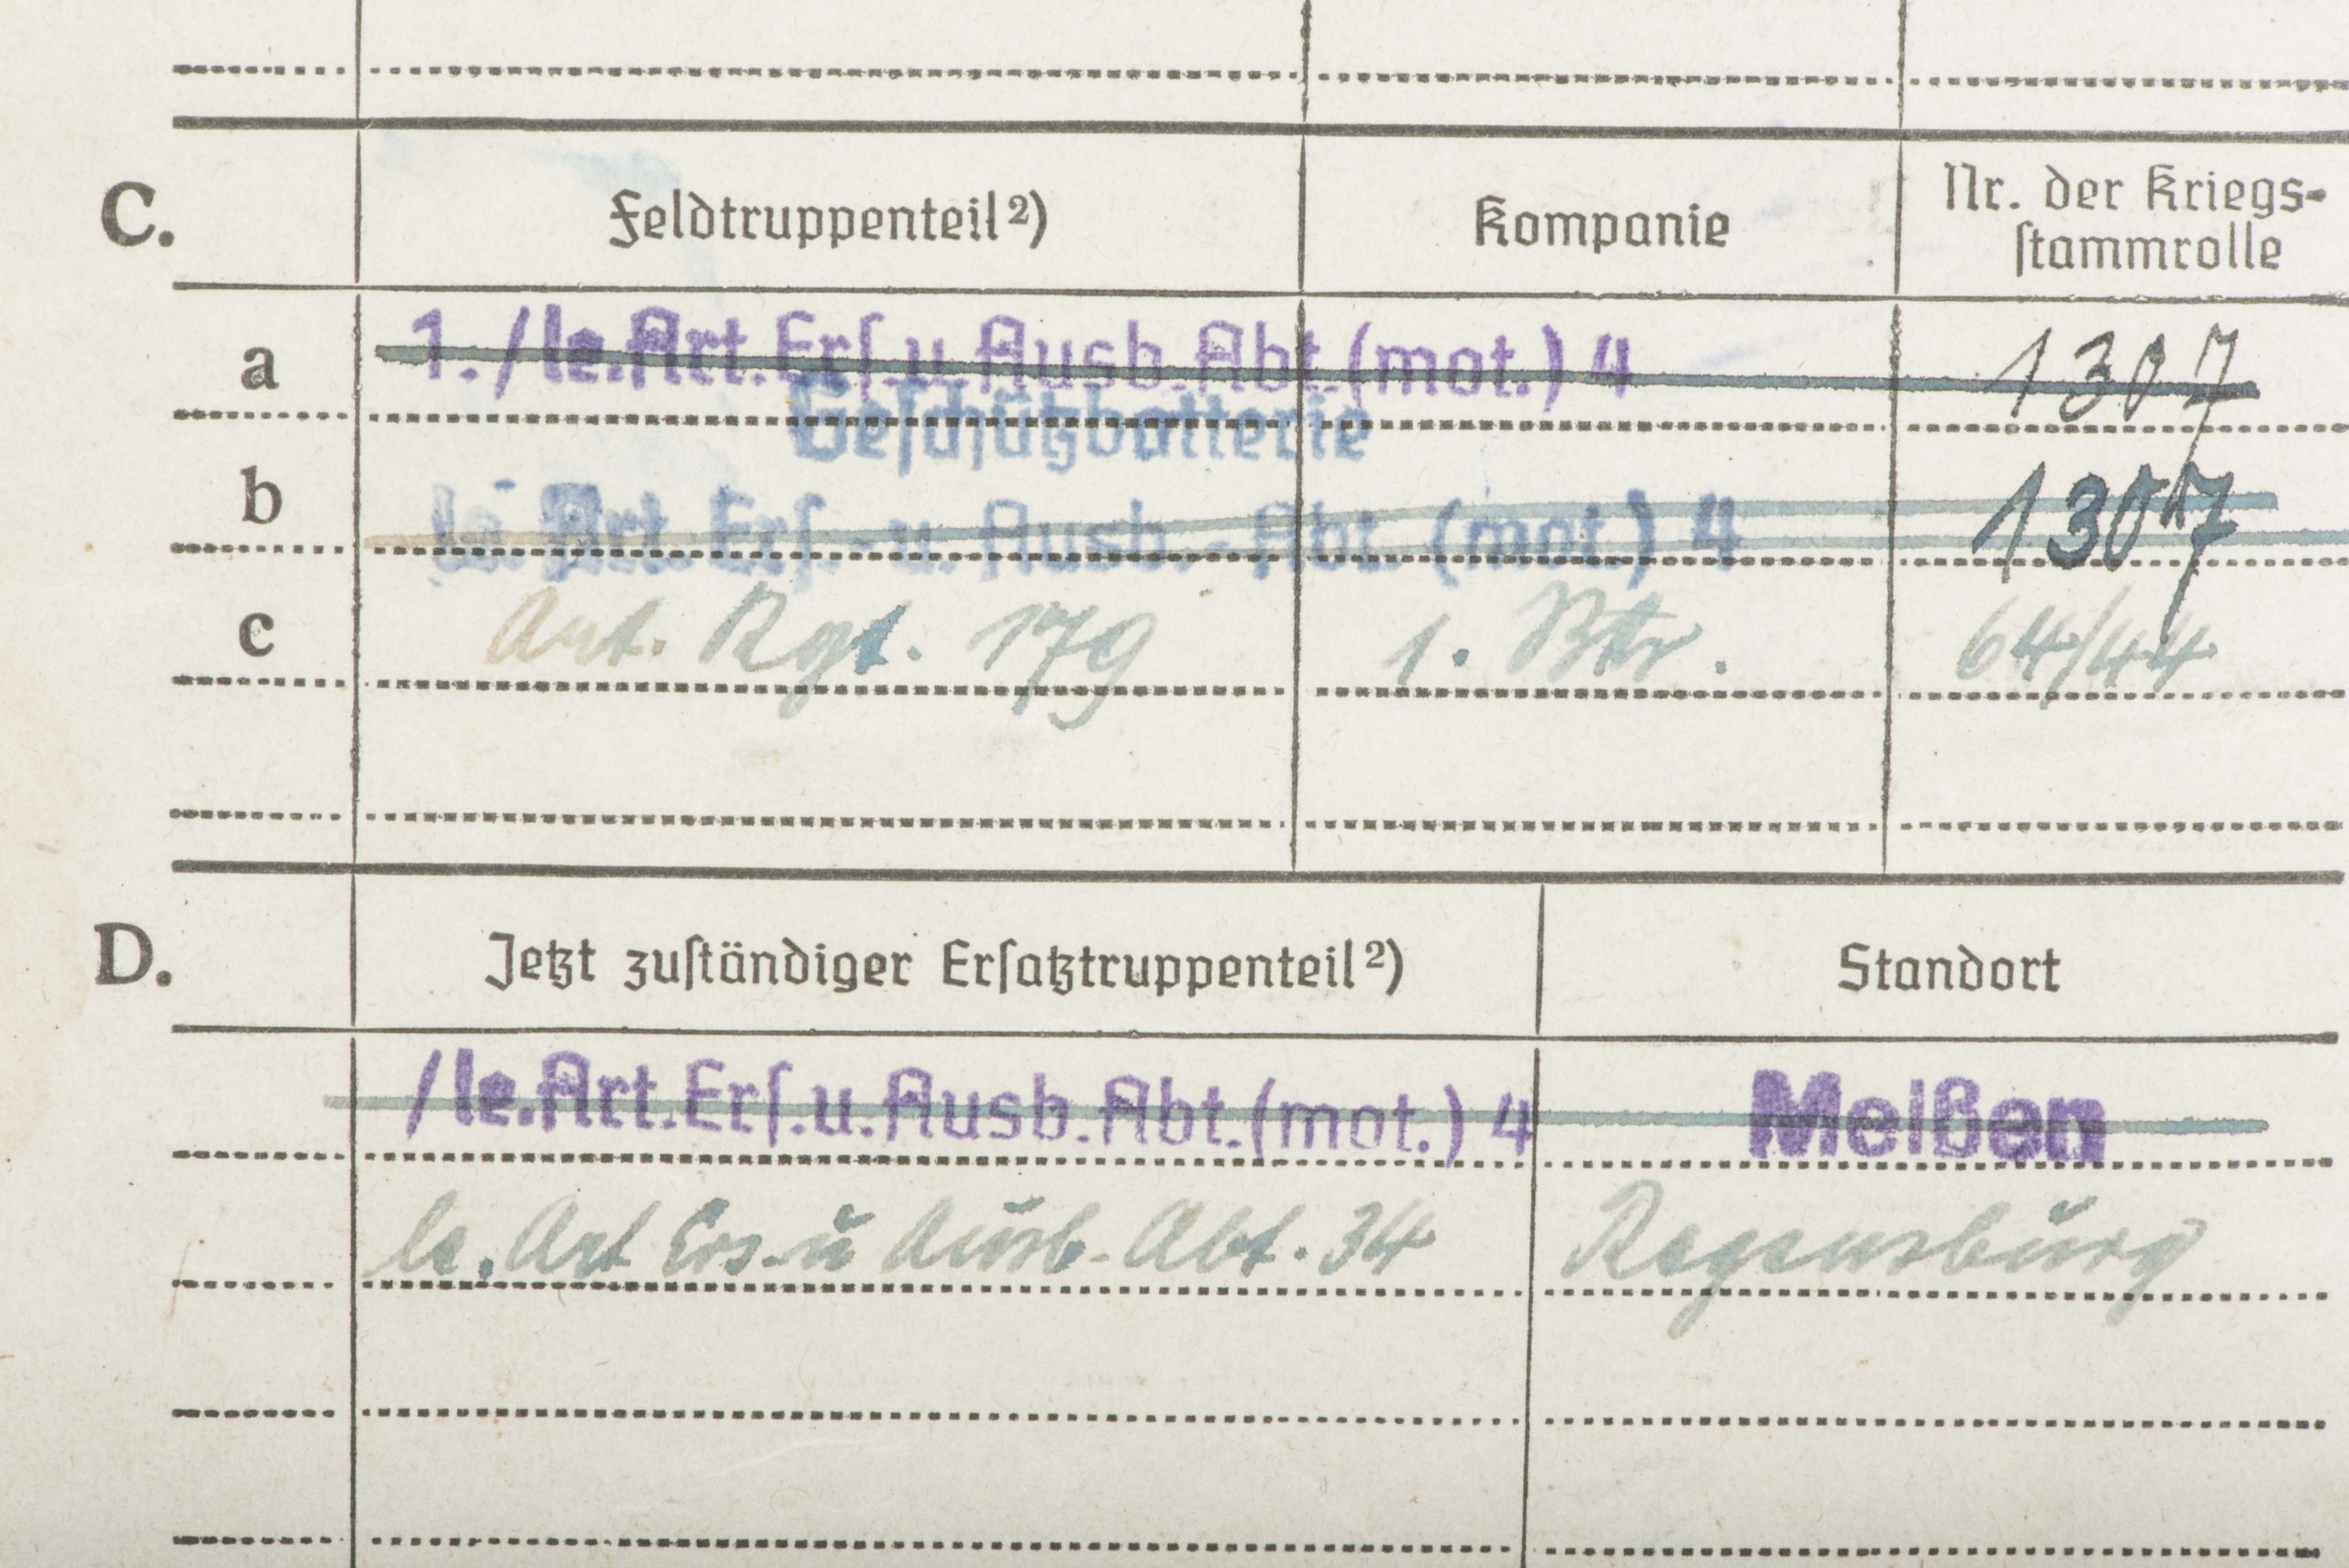 C. Feldtruppenteil²) Kompanie Nr. der Kriegs-
stammrolle
a 1./le.Art.Ers.u.Ausb.Abt.(mot.) 4 1307
Geschützbatterie
b le. Art. Ers.-u. Ausb.-Abt. (mot.) 4 1307
c Art. Rgt. 179 1. Bttr. 64/44
D. Jetzt zuständiger Ersatztruppenteil²) Standort
/le.Art.Ers.u.Ausb.Abt.(mot.) 4 Meißen
le. Art Ers-u Ausb-Abt. 34 Regensburg